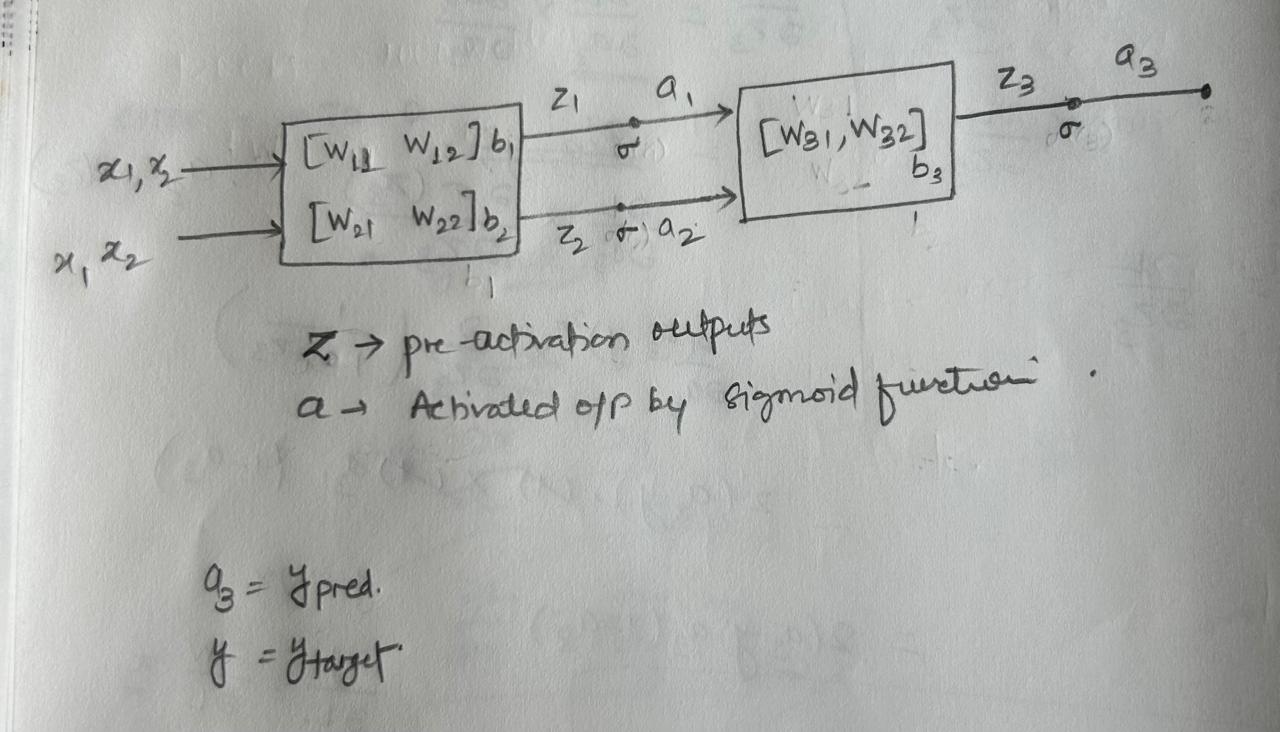 z₁ a₁ z₃ a₃
x₁, x₂ [W₁₁ W₁₂] b₁ σ [W₃₁, W₃₂] σ
[W₂₁ W₂₂] b₂ b₃
x₁ x₂ z₂ σ a₂
b₁
Z → pre-activation outputs
a → Activated o/p by sigmoid function.
a₃ = y pred.
y = y target.